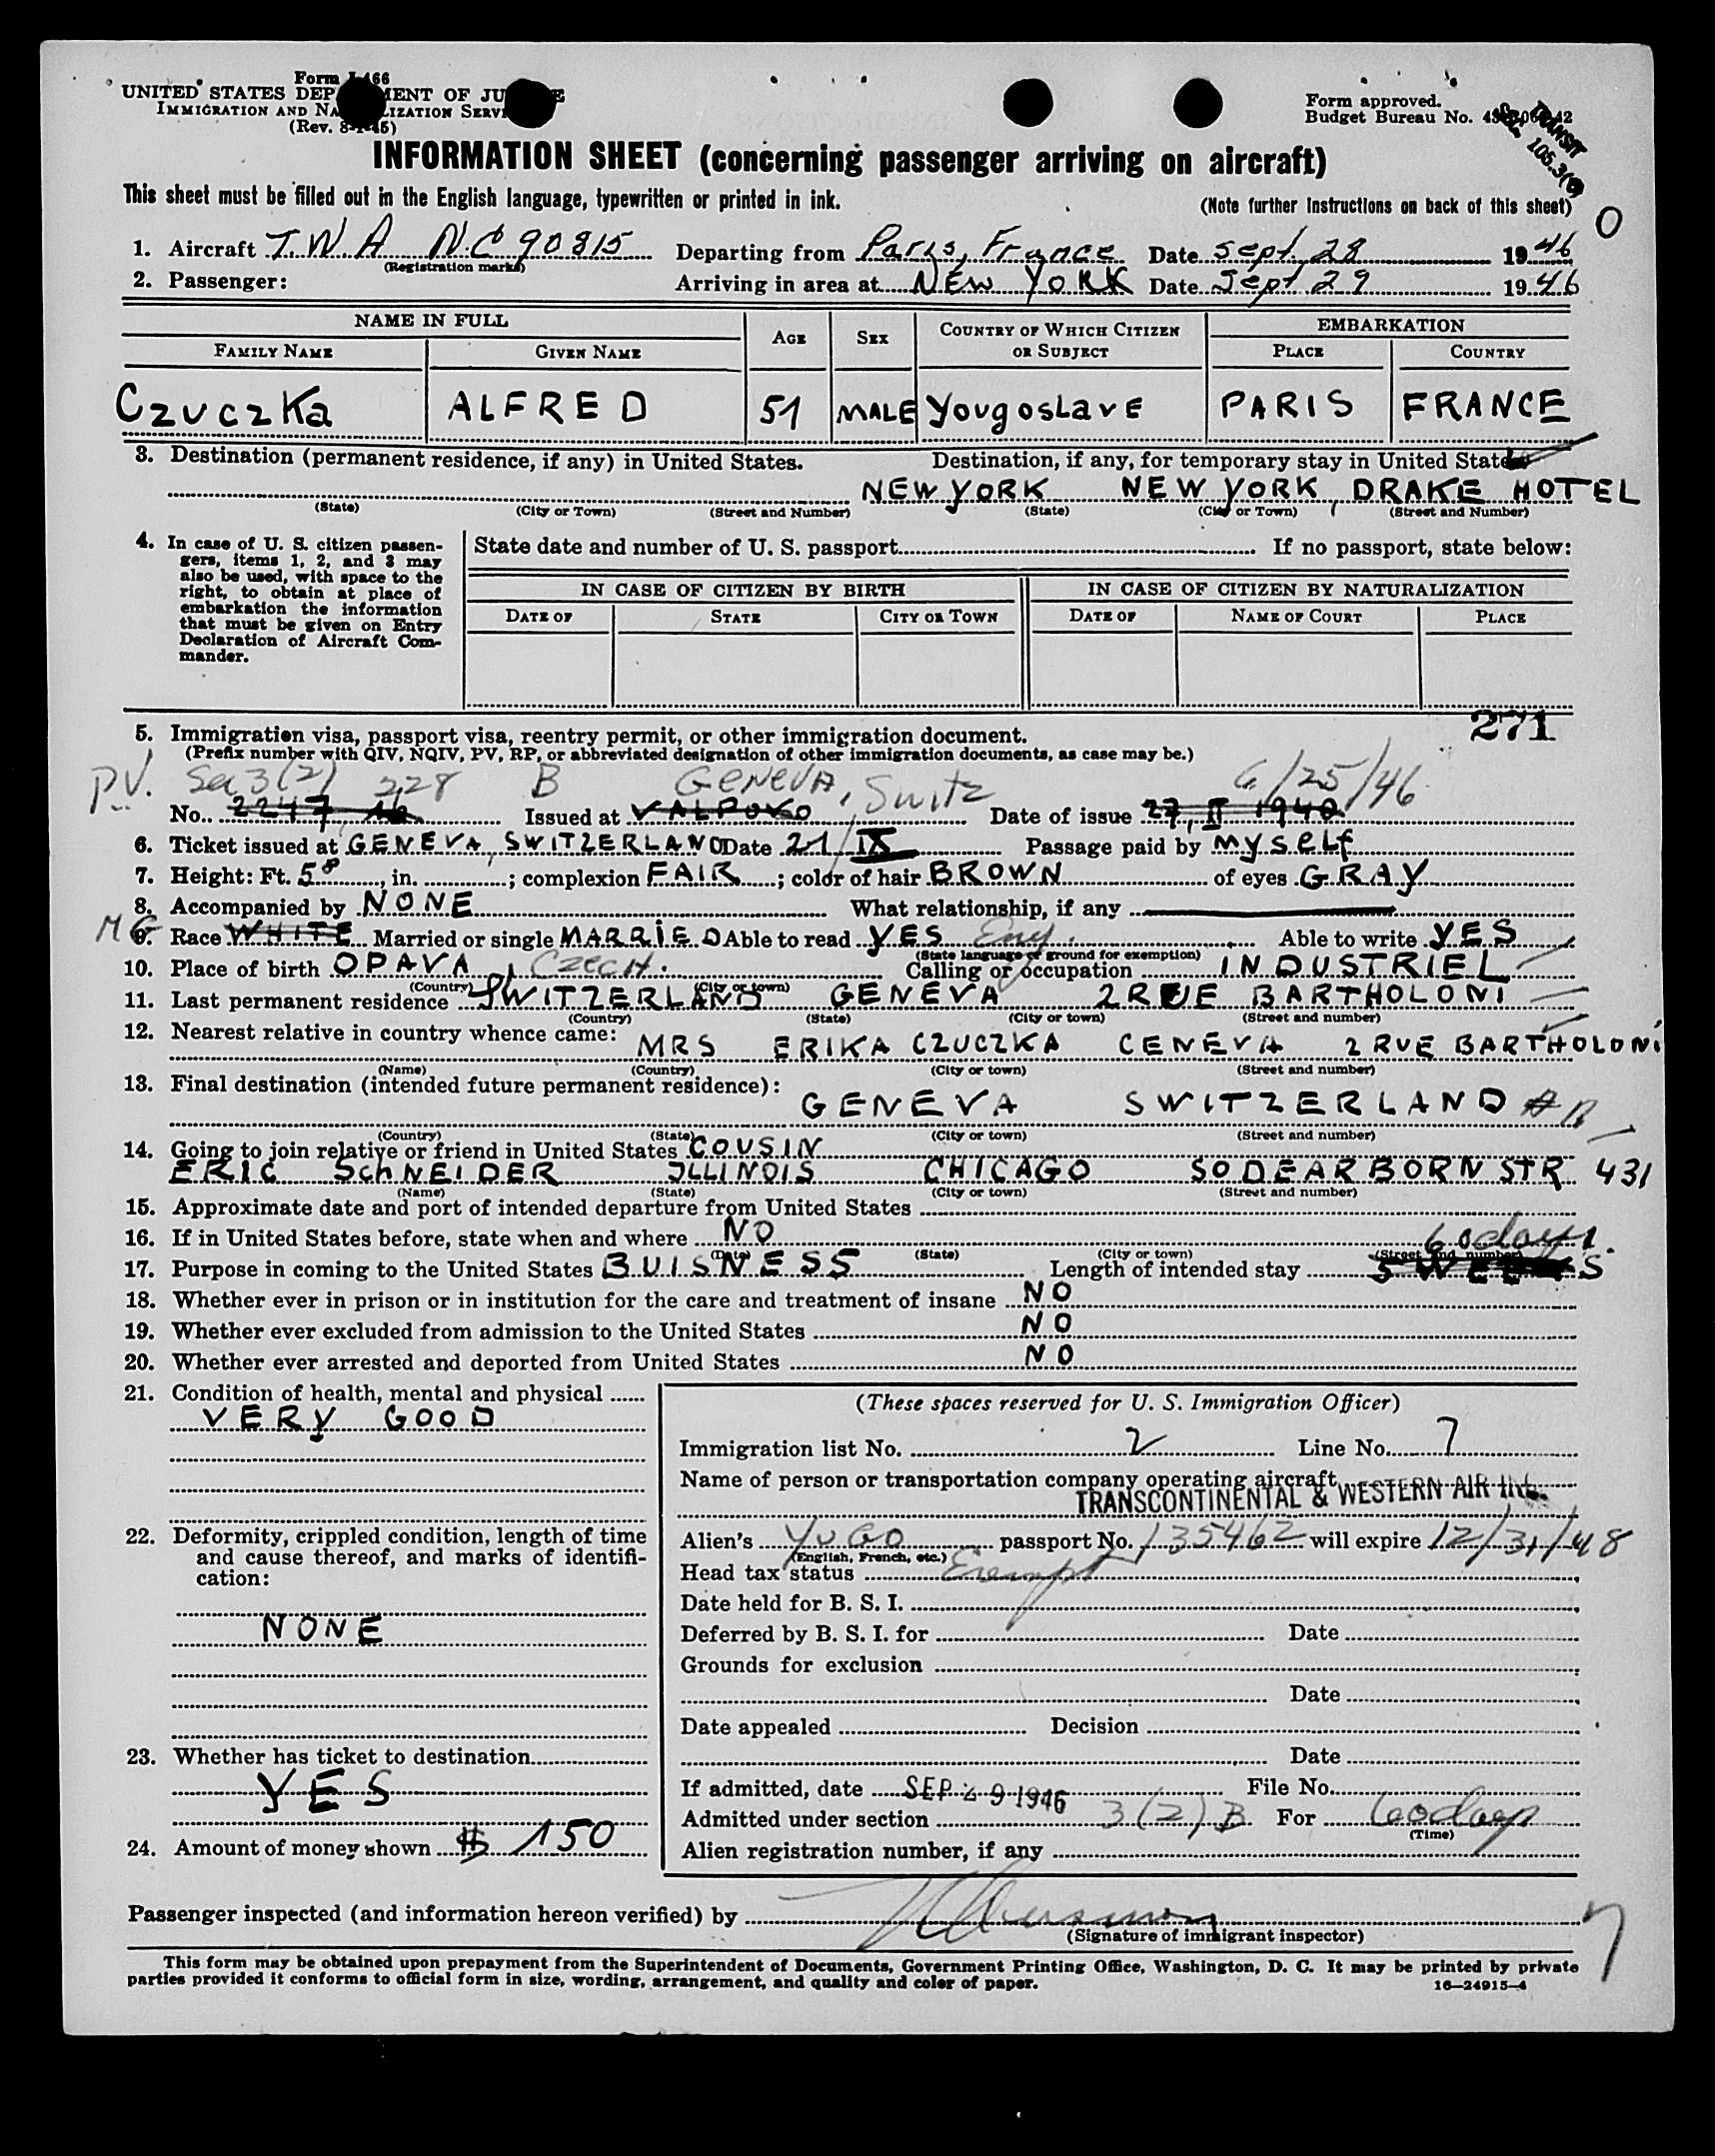 Form I-466
UNITED STATES DEPARTMENT OF JUSTICE
IMMIGRATION AND NATURALIZATION SERVICE
(Rev. 8-1-45)
Form approved.
Budget Bureau No.
TRANSIT
105.3(
INFORMATION SHEET (concerning passenger arriving on aircraft)
This sheet must be filled out in the English language, typewritten or printed in ink.
(Note further instructions on back of this sheet)
O
1. Aircraft T.W.A N.C 90815 Departing from Paris, France Date Sept. 28 1946
(Registration marks)
2. Passenger: Arriving in area at New York Date Sept 29 1946
NAME IN FULL AGE SEX COUNTRY OF WHICH CITIZEN OR SUBJECT EMBARKATION
FAMILY NAME GIVEN NAME PLACE COUNTRY
Czuczka ALFRED 51 MALE YougoslavE PARIS FRANCE
3. Destination (permanent residence, if any) in United States. Destination, if any, for temporary stay in United States
NEW YORK NEW YORK, DRAKE HOTEL
(State) (City or Town) (Street and Number) (State) (City or Town) (Street and Number)
4. In case of U. S. citizen passengers, items 1, 2, and 3 may also be used, with space to the right, to obtain at place of embarkation the information that must be given on Entry Declaration of Aircraft Commander.
State date and number of U. S. passport If no passport, state below:
IN CASE OF CITIZEN BY BIRTH IN CASE OF CITIZEN BY NATURALIZATION
DATE OF STATE CITY OR TOWN DATE OF NAME OF COURT PLACE
271
5. Immigration visa, passport visa, reentry permit, or other immigration document.
(Prefix number with QIV, NQIV, PV, RP, or abbreviated designation of other immigration documents, as case may be.)
P.V. Sec 3(2) 228 B GENEVA, Switz 6/25/46
No. 2247 Issued at VALPOVO Date of issue 27, II 1946
6. Ticket issued at GENEVA, SWITZERLAND Date 21/IX Passage paid by myself
7. Height: Ft. 5 8, in. ; complexion FAIR ; color of hair BROWN of eyes GRAY
8. Accompanied by NONE What relationship, if any
9. Race WHITE Married or single MARRIED Able to read YES Eng. Able to write YES
(State language or ground for exemption)
10. Place of birth OPAVA, CZECH. Calling or occupation INDUSTRIEL
(Country) (City or town)
11. Last permanent residence SWITZERLAND GENEVA 2 RUE BARTHOLONI
(Country) (State) (City or town) (Street and number)
12. Nearest relative in country whence came: MRS ERIKA CZUCZKA CENEVA 2 RUE BARTHOLONI
(Name) (Country) (City or town) (Street and number)
13. Final destination (intended future permanent residence):
GENEVA SWITZERLAND
(Country) (State) (City or town) (Street and number)
14. Going to join relative or friend in United States COUSIN
ERIC SCHNEIDER ILLINOIS CHICAGO SO DEARBORN STR 431
(Name) (State) (City or town) (Street and number)
15. Approximate date and port of intended departure from United States
16. If in United States before, state when and where NO
(Date) (State) (City or town) (Street and number)
60 days.
17. Purpose in coming to the United States BUISNESS Length of intended stay 5 WEEKS
18. Whether ever in prison or in institution for the care and treatment of insane NO
19. Whether ever excluded from admission to the United States NO
20. Whether ever arrested and deported from United States NO
21. Condition of health, mental and physical
VERY GOOD
22. Deformity, crippled condition, length of time and cause thereof, and marks of identification:
NONE
23. Whether has ticket to destination
YES
24. Amount of money shown $ 150
(These spaces reserved for U. S. Immigration Officer)
Immigration list No. 2 Line No. 7
Name of person or transportation company operating aircraft
TRANSCONTINENTAL & WESTERN AIR INC.
Alien's YUGO passport No. 135462 will expire 12/31/48
(English, French, etc.)
Head tax status Exempt
Date held for B. S. I.
Deferred by B. S. I. for Date
Grounds for exclusion
Date
Date appealed Decision
Date
If admitted, date SEP 29 1946 File No.
Admitted under section 3(2)B For 60 days
(Time)
Alien registration number, if any
Passenger inspected (and information hereon verified) by
(Signature of immigrant inspector)
This form may be obtained upon prepayment from the Superintendent of Documents, Government Printing Office, Washington, D. C. It may be printed by private
parties provided it conforms to official form in size, wording, arrangement, and quality and color of paper.
16—24915-4